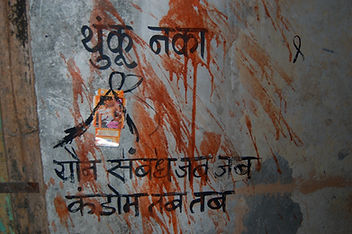 थुंकू नका
यौन संबध जब जब
कंडोम तब तब